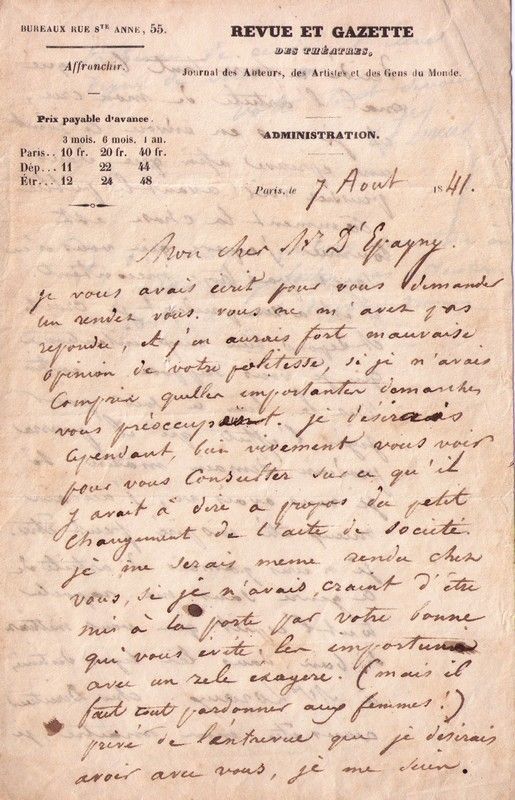 BUREAUX RUE STE ANNE, 55.
Affranchir.
Prix payable d'avance.
3 mois. 6 mois. 1 an.
Paris.. 10 fr. 20 fr. 40 fr.
Dép... 11 22 44
Étr... 12 24 48
REVUE ET GAZETTE
DES THÉATRES,
Journal des Auteurs, des Artistes et des Gens du Monde.
ADMINISTRATION.
Paris, le 7 Aout 1841.
Mon cher Mr D'Epagny.
je vous avais ecrit pour vous demander
un rendez vous. vous ne m'avez pas
repondu, et j'en aurais fort mauvaise
opinion de votre politesse, si je n'avais
compris quelles importantes demarches
vous préoccupaient. je desirais
cependant, bien vivement vous voir
pour vous consulter sur ce qu'il
y avait à dire a propos du petit
changement de l'acte de societé.
je me serais meme rendu chez
vous, si je n'avais craint d'etre
mis à la porte par votre bonne
qui vous evite les importuns
avec un zele exagéré. (mais il
faut tout pardonner aux femmes!)
privé de l'entrevue que je désirais
avoir avec vous, je me suis.